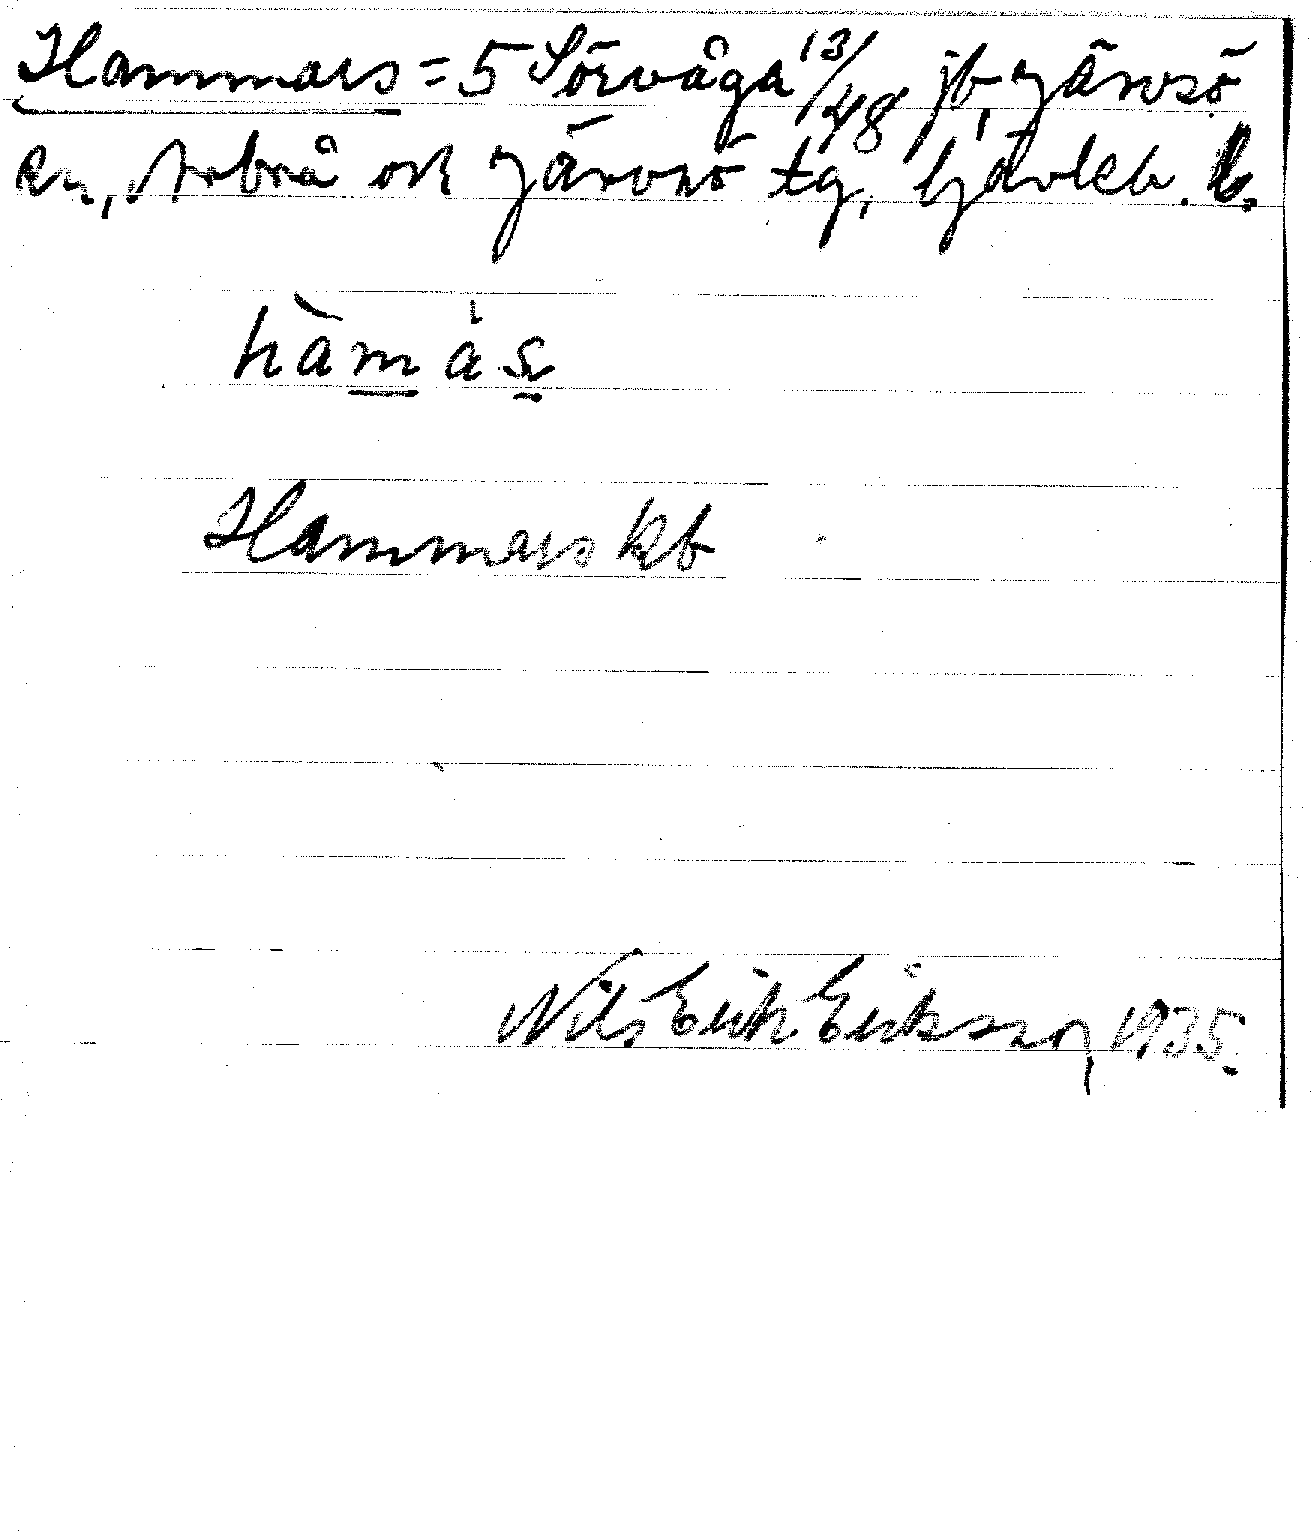 Hammars = 5 Sörvåga 13/48 jb, Järvsö
sn, Arbrå och Järvsö tg, Gävleb. l.
hàmàs
Hammars kb
Nils Erik Eriksson, 1935.